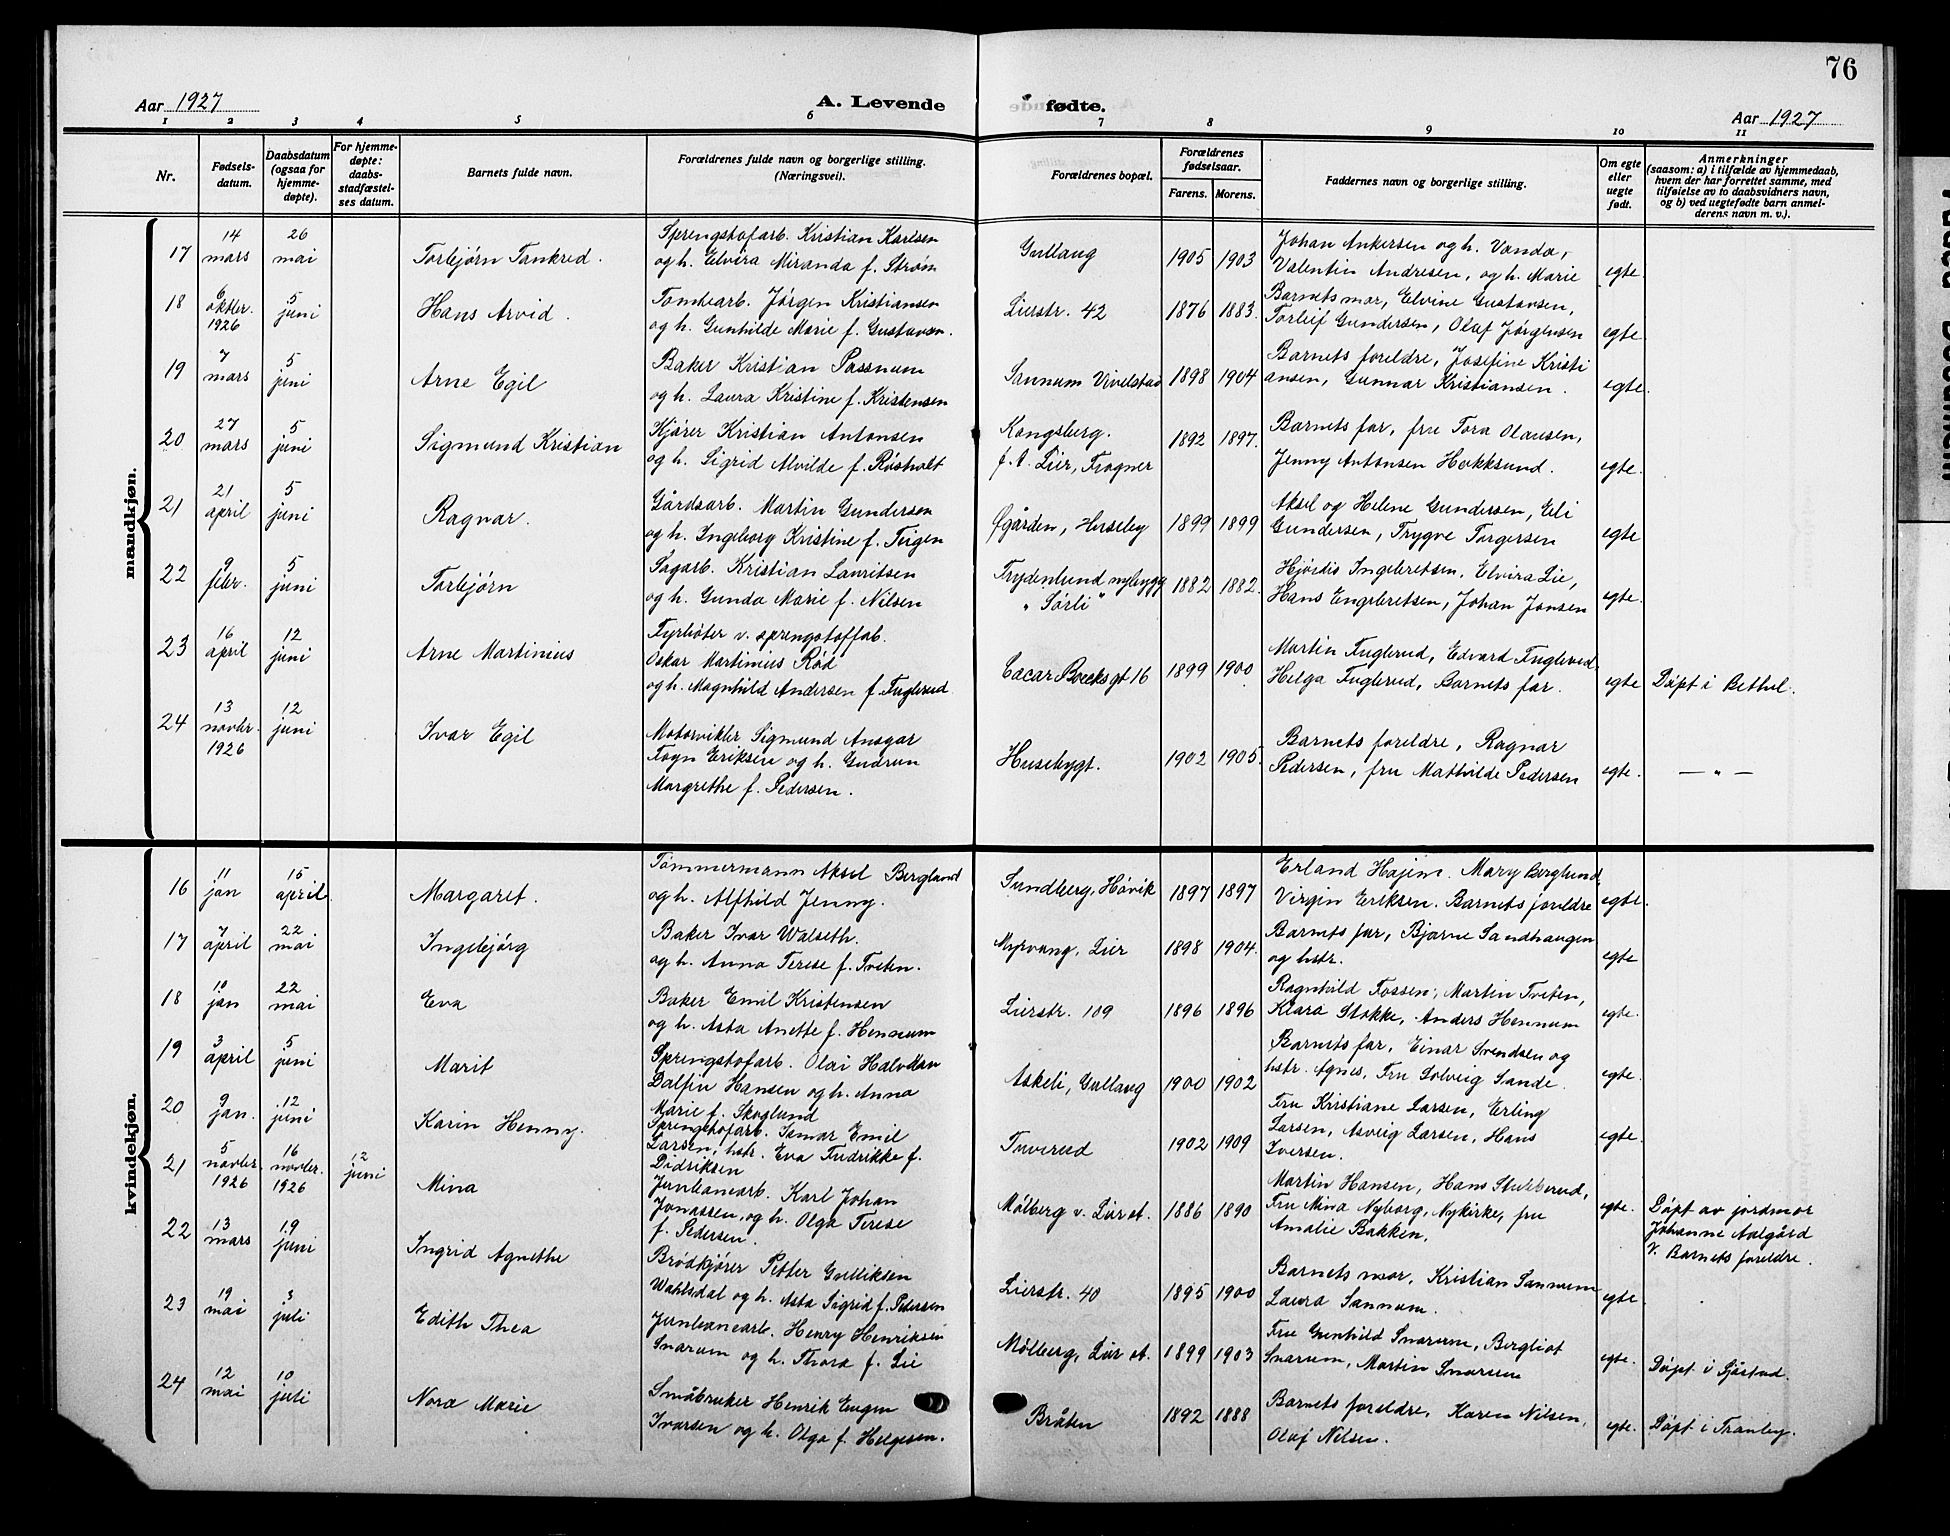 76
Aar 1927
A. Levende
fødte.
Aar 1927
1 2 3 4 5 6 7 8 9 10 11
Nr.
Fødsels-
datum.
Daabsdatum
(ogsaa for
hjemme-
døpte).
For hjemme-
døpte:
daabs-
stadfæstel-
ses datum.
Barnets fulde navn.
Forældrenes fulde navn og borgerlige stilling.
(Næringsvei).
Forældrenes bopæl.
Forældrenes
fødselsaar.
Farens. Morens.
Faddernes navn og borgerlige stilling.
Om egte
eller
uegte
født.
Anmerkninger
(saasom: a) i tilfælde av hjemmedaab,
hvem der har forrettet samme, med
tilføielse av to daabsvidners navn,
og b) ved uegtefødte barn anmel-
derens navn m. v.).
mandkjøn.
17
14
mars
26
mai
Torbjørn Tankred.
Sprengstofarb. Kristian Karlsen
og h. Elvira Miranda f. Strøm
Gullaug
1905 1903
Johan Ankersen og h. Vanda,
Valentin Andresen, og h. Marie
egte
18
6
oktbr.
1926
5
juni
Hans Arvid.
Tomtearb. Jørgen Kristiansen
og h. Gunhilde Marie f. Gustavsen.
Lierstr. 42
1876 1883.
Barnets mor, Elvine Gustavsen,
Torleif Gundersen, Olaf Jørgensen
egte
19
7
mars
5
juni
Arne Egil
Baker Kristian Passnum
og h. Laura Kristine f. Kristensen
Sannum Vivelstad
1898 1904
Barnets foreldre, Josefine Kristi
ansen, Gunnar Kristiansen.
egte.
20
27
mars
5
juni
Sigmund Kristian
Kjører Kristian Antonsen
og h. Sigrid Alvilde f. Røsholt
Kongsberg.
f. t. Lier, Frogner
1892 1897.
Barnets far, fru Tora Olausen,
Jenny Antonsen Hokksund.
egte.
21
21
april
5
juni
Ragnar.
Gårdsarb. Martin Gundersen
og h. Ingeborg Kristine f. Teigen
Øgården, Huseby
1899 1899
Aksel og Helene Gundersen, Eli
Gundersen, Trygve Torgersen
egte
22
9
febr.
5
juni
Torbjørn
Sagarb. Kristian Lauritsen
og h. Gunda Marie f. Nilsen
Frydenlund nybygg
" Sørli "
1882 1882.
Hjørdis Ingebretsen, Elvira Lie,
Hans Engebretsen, Johan Jonsen
egte.
23
16
april
12
juni
Arne Martinius
Fyrbøter v. sprengstoffab.
Oskar Martinius Rød
og h. Magnhild Andersen f. Fuglerud
Cæcar Boecks gt 16
1899 1900
Martin Fuglerud, Edvard Fuglerud
Helga Fuglerud, Barnets far.
egte
Døpt i Bethel.
24
13
novbr.
1926
12
juni
Ivar Egil
Motorvikler Sigmund Ansgar
Fogn Eriksen og h. Gudrun
Margrethe f. Pedersen.
Husebygt.
1902 1905.
Barnets foreldre, Ragnar
Pedersen, fru Mathilde Pedersen
egte.
— " —
kvindekjøn.
16
11
jan
15
april
Margaret.
Tømmermann Aksel Berglund
og h. Alfhild Jenny.
Sundberg, Høvik
1897 1897
Erland Hajem. Mary Berglund,
Virgin Eriksen. Barnets foreldre
egte.
17
7
april
22
mai
Ingebjørg
Baker Ivar Walseth.
og h. Anna Terese f. Tveten.
Myrvang, Lier
1898 1904.
Barnets far, Bjarne Sandhaugen
og hstr.
egte
18
10
jan
22
mai
Eva
Baker Emil Kristensen
og h. Asta Anette f. Hennum
Lierstr. 109
1896 1896
Ragnhild Fossen, Martin Tveten,
Klara Stokke, Anders Hennum
egte.
19
3
april
5
juni
Marit
Sprengstofarb. Olai Halvdan
Dalfin Hansen og h. Anna
Marie f. Skoglund
Askeli, Gullaug
1900 1902
Barnets far, Einar Svendsen og
hstr. Agnes, Fru Solveig Sande.
egte.
20
9
jan.
12
juni
Karin Henny.
Sprengstofarb. Ismar Emil
Larsen, hstr. Eva Fredrikke f.
Didriksen
Tuverud
1902 1909
Fru Kristiane Larsen, Erling
Larsen, Asveig Larsen, Hans
Iversen.
egte.
21
5
novbr.
1926
16
novbr.
1926
12
juni
Mina
Jernbanearb. Karl Johan
Jonassen, og h. Olga Terese
f. Pedersen.
Mølberg v. Lier st.
1886 1890
Martin Hansen, Hans Stubberud,
Fru Mina Nyborg, Nykirke, fru
Amalie Bakken,
egte.
Døpt av jordmor
Johanne Aalgård
v. Barnets foreldre.
22
13
mars
19
juni
Ingrid Agnethe
Brødkjører Petter Gulliksen
Wahlsdal og h. Asta Sigrid f. Pedersen
Lierstr. 40
1895 1900
Barnets mor, Kristian Sannum
Laura Sannum.
egte.
23
19
mai
3
juli
Edith Thea
Jernbanearb. Henry Henriksen
Snarum og h. Thora f. Lie
Mølberg, Lier st.
1899 1903
Fru Gunhild Snarum, Bergliot
Snarum, Morten Snarum
egte.
Døpt i Sjåstad.
24
12
mai
10
juli
Nora Marie
Småbruker Henrik Eugen
Ivarsen og h. Olga f. Helgesen.
Bråten
1892 1888
Barnets foreldre, Karen Nilsen,
Olaf Nilsen.
egte.
Døpt i Tranby.